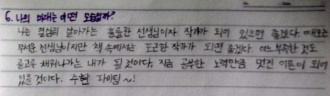 6. 나의 미래는 어떤 모습일까?
나는 열심히 살아가는 훌륭한 선생님이자 작가가 되어 있으면 좋겠다. 때로는
무서운 선생님이지만 책 속에서는 포근한 작가가 되면 좋겠다. 어느 부족한 것도
골고루 채워나가는 내가 될 것이다. 지금 공부한 노력만큼 멋진 어른이 되어
있을 것이다. 수현 파이팅~!